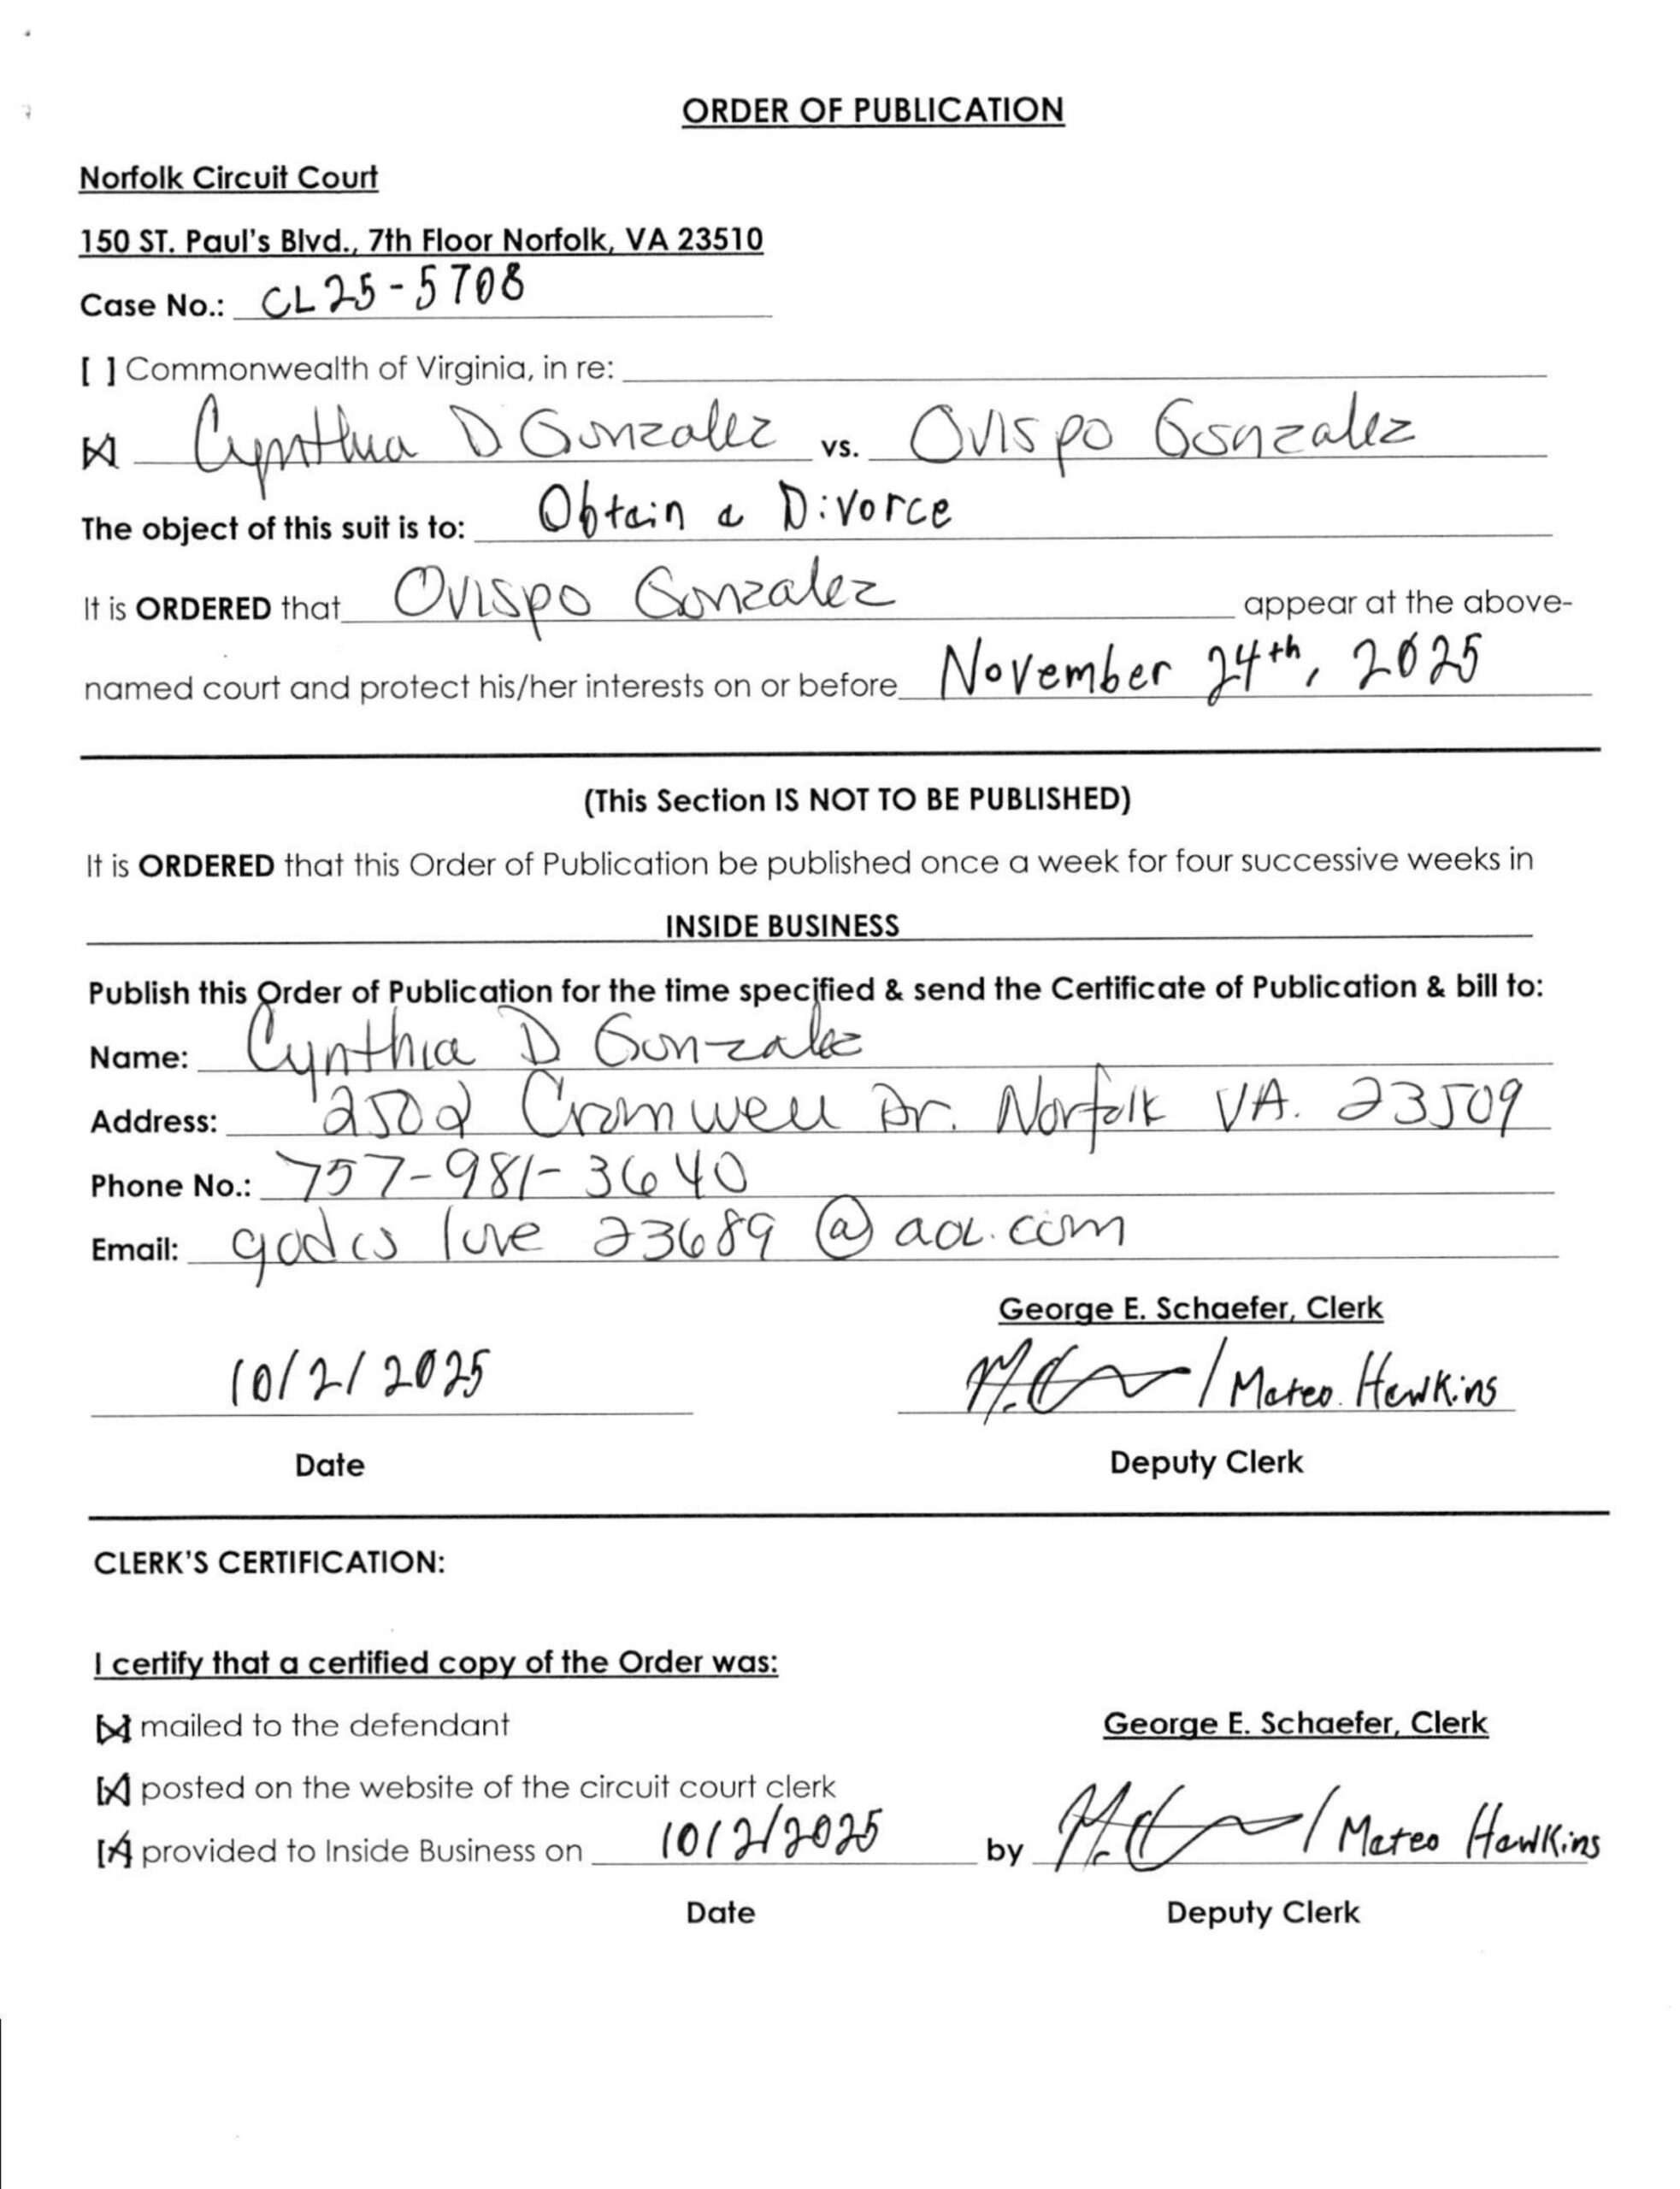 ORDER OF PUBLICATION
Norfolk Circuit Court
150 ST. Paul's Blvd., 7th Floor Norfolk, VA 23510
Case No.: CL25-5708
[ ] Commonwealth of Virginia, in re:
[X] Cynthia D Gonzalez vs. Ovispo Gonzalez
The object of this suit is to: Obtain a Divorce
It is ORDERED that Ovispo Gonzalez appear at the above-
named court and protect his/her interests on or before November 24th, 2025
(This Section IS NOT TO BE PUBLISHED)
It is ORDERED that this Order of Publication be published once a week for four successive weeks in
INSIDE BUSINESS
Publish this Order of Publication for the time specified & send the Certificate of Publication & bill to:
Name: Cynthia D Gonzalez
Address: 2502 Cromwell Dr. Norfolk VA. 23509
Phone No.: 757-981-3640
Email: love 23689 @ aol.com
George E. Schaefer, Clerk
10/2/2025 / Mateo Hawkins
Date Deputy Clerk
CLERK'S CERTIFICATION:
I certify that a certified copy of the Order was:
[X] mailed to the defendant George E. Schaefer, Clerk
[X] posted on the website of the circuit court clerk
[X] provided to Inside Business on 10/2/2025 by / Mateo Hawkins
Date Deputy Clerk